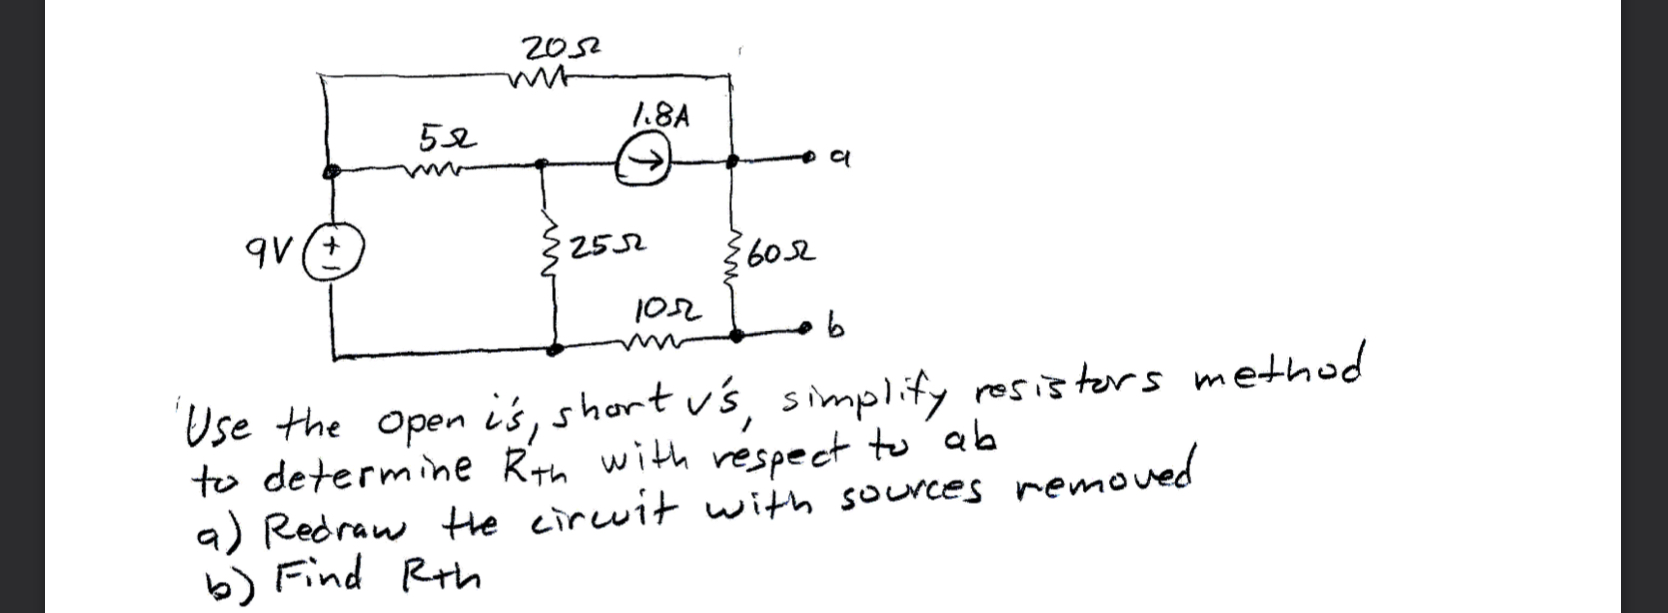 20Ω
1.8A
5Ω
a
9V
+
-
25Ω
60Ω
10Ω
b
'Use the open i's, short v's, simplify resistors method
to determine RTh with respect to ab
a) Redraw the circuit with sources removed
b) Find Rth